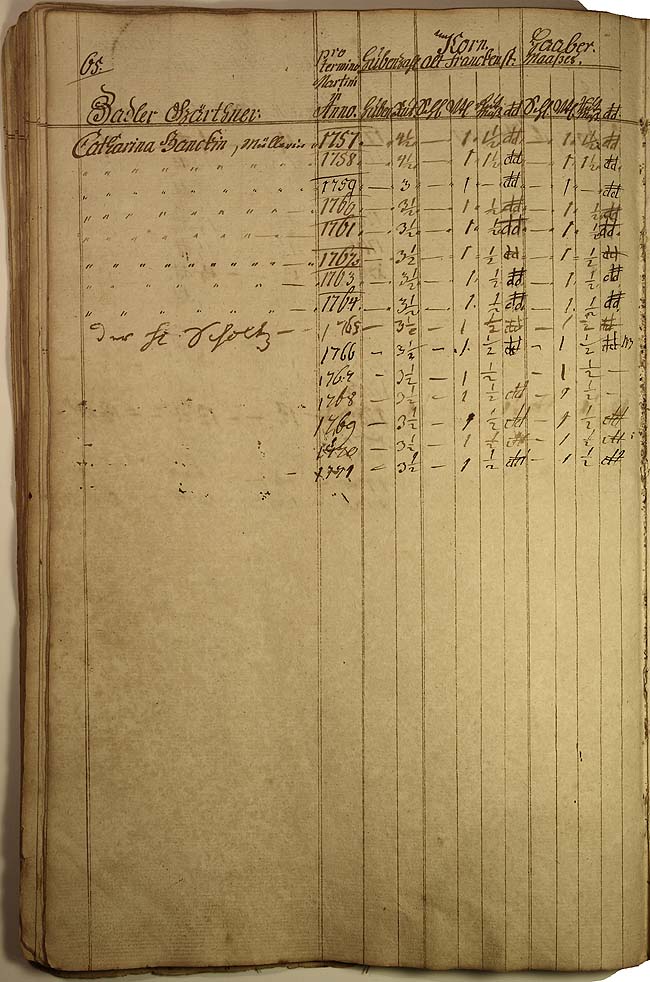 65.
pro termino Martini in Anno.
Korn. Haaber.
alt Franckenst. Maaßes.
Zadler Gärthner.
Catharina Hanckin, Müllerin 1757 — 4½ — 1. 1½ dd — 1. 1½ dd
" " " " " " " 1758 — 4½ — 1. 1½ dd — 1. 1½ dd
" " " " " " " 1759 — 3 — 1. — dd — 1. — dd
" " " " " " " 1760 — 3½ — 1. ½ dd — 1. ½ dd
" " " " " " " 1761 — 3½ — 1. ½ dd — 1. ½ dd
" " " " " " " 1762 — 3½ — 1 ½ dd — 1 ½ dd
" " " " " " " 1763 — 3½ — 1. ½ dd — 1. ½ dd
" " " " " " " 1764 — 3½ — 1. ½ dd — 1. ½ dd
der Scholtz — 1765 — 3½ — 1 ½ dd — 1 ½ dd
1766 — 3½ — 1. ½ dd — 1 ½ dd
1767 — 3½ — 1 ½ — 1 ½ —
1768 — 3½ — 1 ½ dd — 1 ½ —
1769 — 3½ — 1 ½ dd — 1 ½ dd
1770 — 3½ — 1 ½ dd — 1 ½ dd
1771 — 3½ — 1 ½ dd — 1 ½ dd